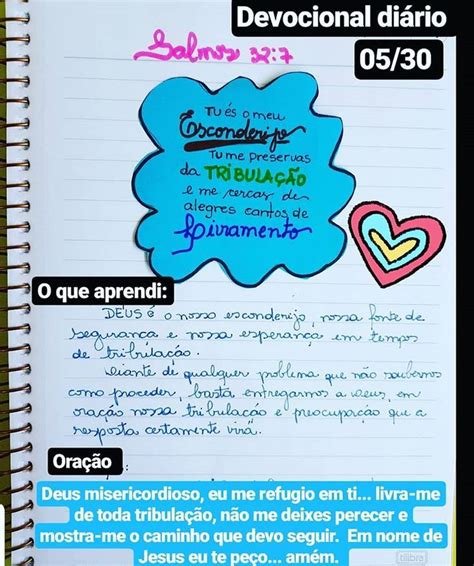 Devocional diário
05/30
Salmos 32:7
Tu és o meu
Esconderijo
Tu me preservas
da TRIBULAÇÃO
e me cercas de
alegres cantos de
Livramento
O que aprendi:
DEUS é o nosso esconderijo, nossa fonte de
segurança e nossa esperança em tempos
de tribulação.
Diante de qualquer problema que não soubermos
como proceder, basta entregarmos a Deus, em
oração nossa tribulação e preocupação que a
resposta certamente virá.
Oração :
Deus misericordioso, eu me refugio em ti... livra-me
de toda tribulação, não me deixes perecer e
mostra-me o caminho que devo seguir. Em nome de
Jesus eu te peço... amém.
tilibra